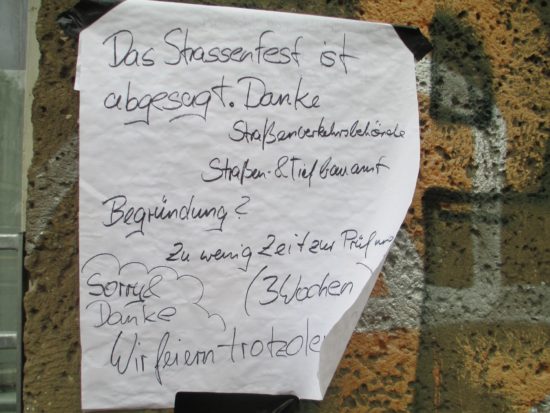 Das Strassenfest ist
abgesagt. Danke
Straßenverkehrsbehörde
Straßen- & Tiefbauamt
Begründung?
Zu wenig Zeit zur
(3 Wochen)
Sorry &
Danke
Wir feiern